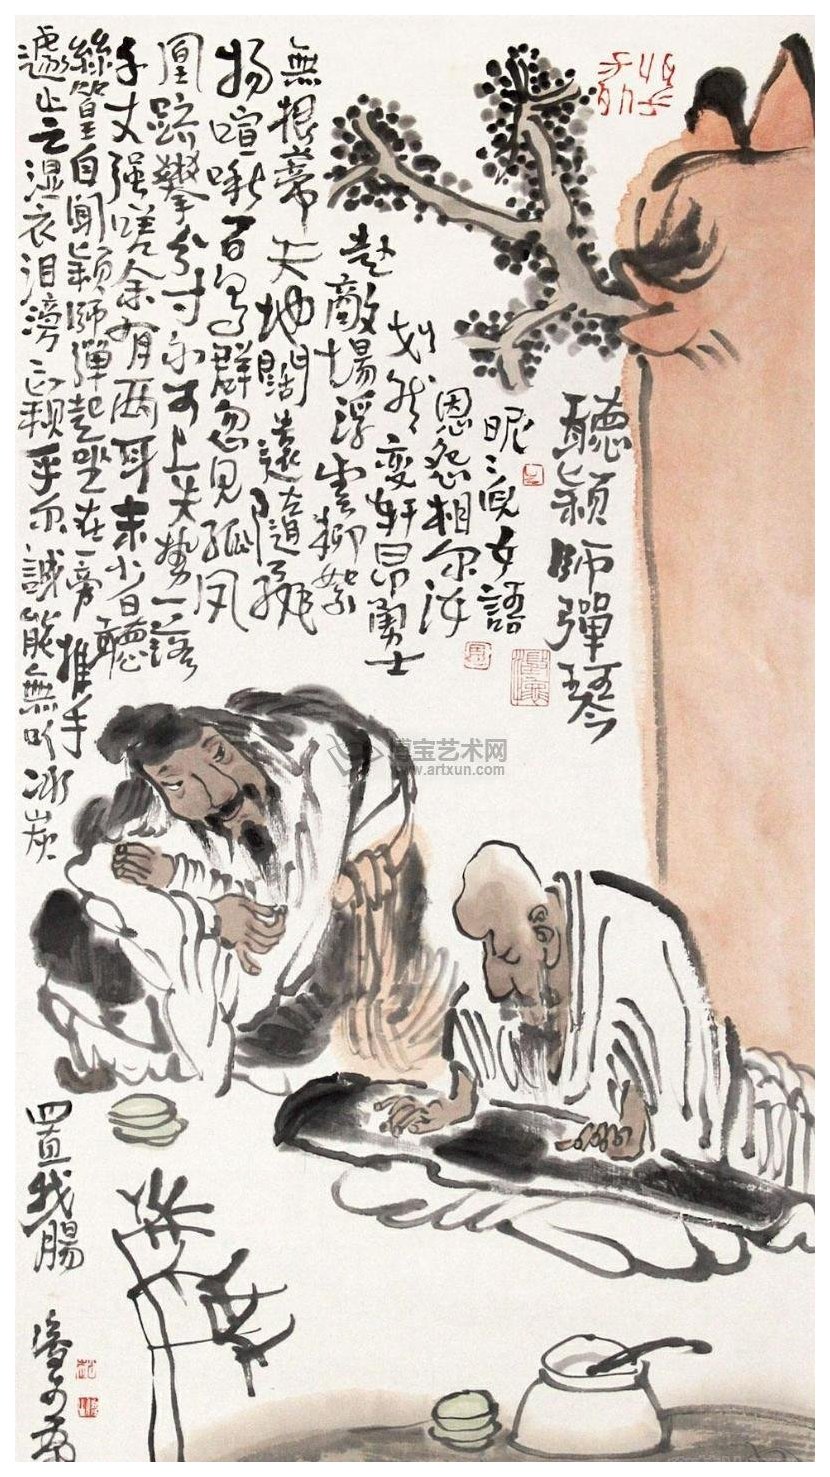 聽穎師彈琴
昵〻兒女語
恩怨相尔汝
划然变軒昂勇士
赴敵場浮雲柳絮
無根蒂天地闊遠隨飛
揚喧啾百鳥群忽見孤凤
凰躋攀分寸不可上失勢一落
千丈强嗟余有两耳未省聽
絲篁自聞穎師彈起坐在一旁推手
遽止之湿衣泪滂〻穎乎尔誠能無以冰炭
置我腸
博宝艺术网
www.artxun.com